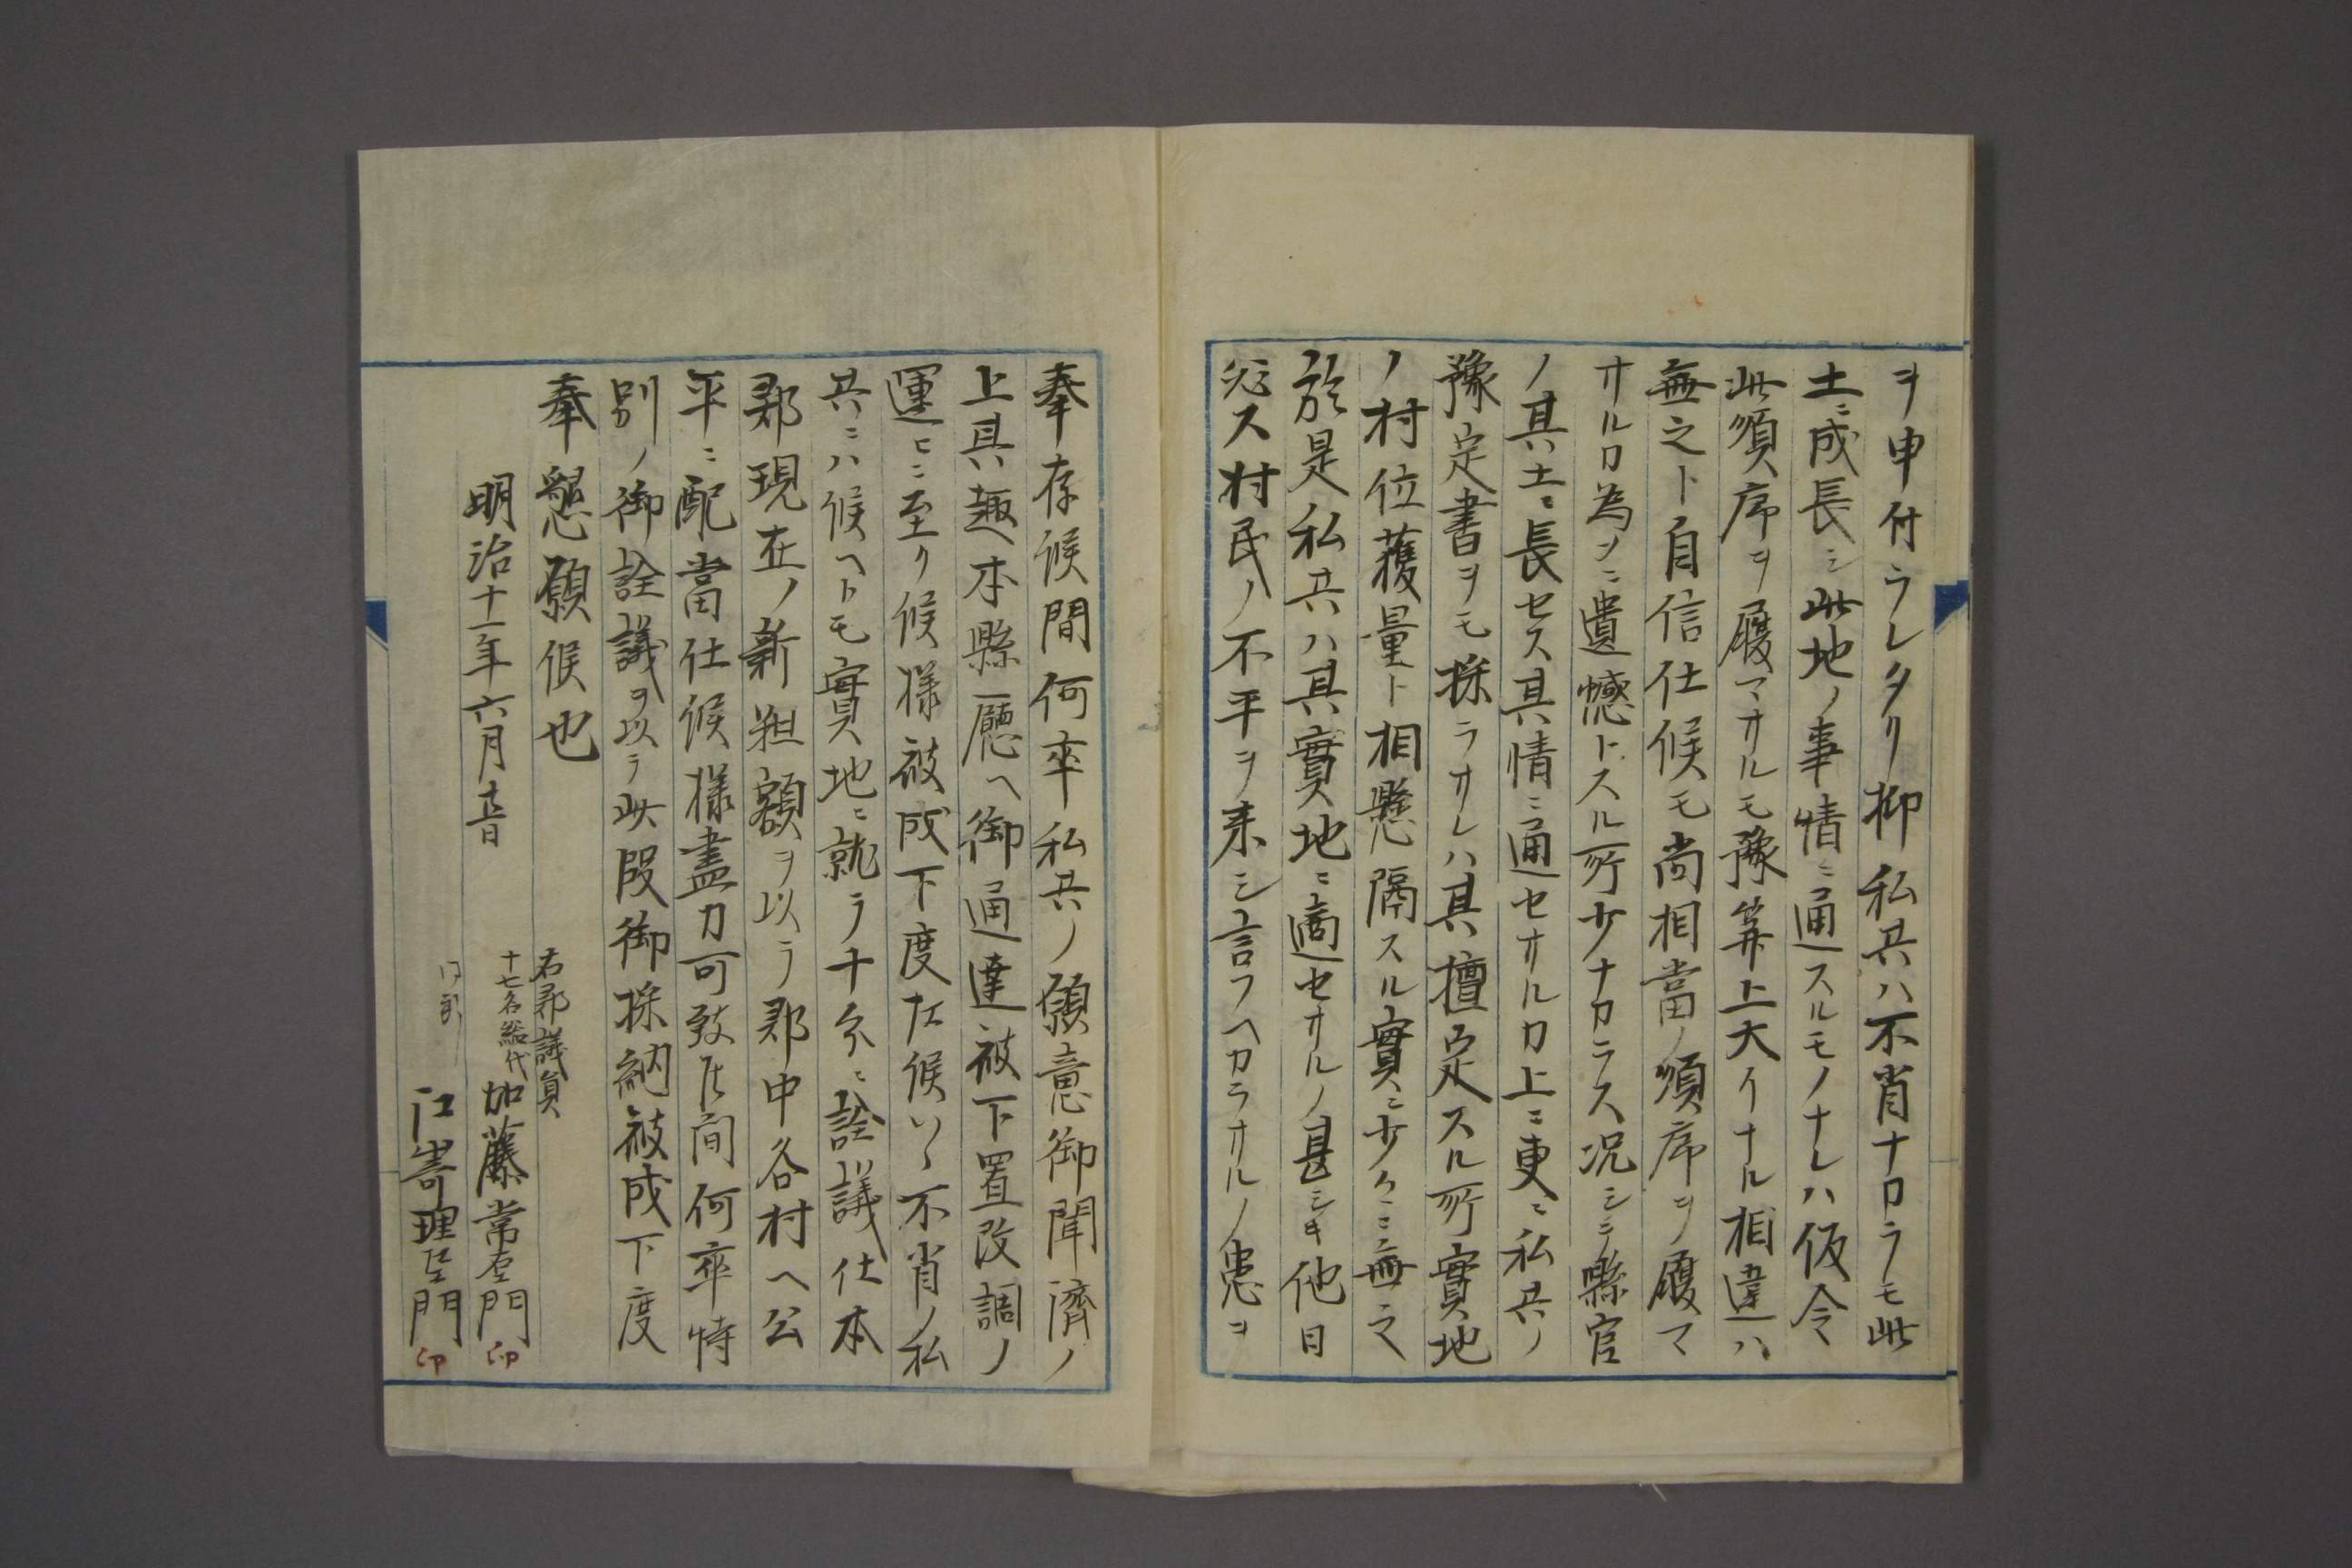 ヲ申付ラレタリ抑私共ハ不肖ナカラモ此
土ニ成長シ此地ノ事情ニ通スルモノナレハ仮令
此順序ヲ履マサルモ豫算上大イナル相違ハ
無之ト自信仕候モ尚相當ノ順序ヲ履マ
サルカ為メニ遺憾トスル所少ナカラス况シテ縣官
ノ其土ニ長セス其情ニ通セサルカ上ニ更ニ私共ノ
豫定書ヲモ採ラサレハ其擅定スル所實地
ノ村位獲量ト相懸隔スル實ニ少クニ無之
於是私共ハ其實地ニ適セサルノ甚シキ他日
必ス村民ノ不平ヲ来シ言フヘカラサルノ患ヲ
奉存候間何卒私共ノ願意御聞濟ノ
上具趣本縣廳ヘ御通達被下置改調ノ
運ヒニ至リ候様被成下度左候ハヽ不肖ノ私
共ニハ候ヘトモ實地ニ就テ十分ニ詮議仕本
郡現在ノ新租額ヲ以テ郡中各村ヘ公
平ニ配當仕候様盡力可致候間何卒特
別ノ御詮議ヲ以テ此段御採納被成下度
奉懇願候也
明治十一年六月十五日
右郡議員
十七名総代
加藤常左門 印
同郡
江嵜理左門 印